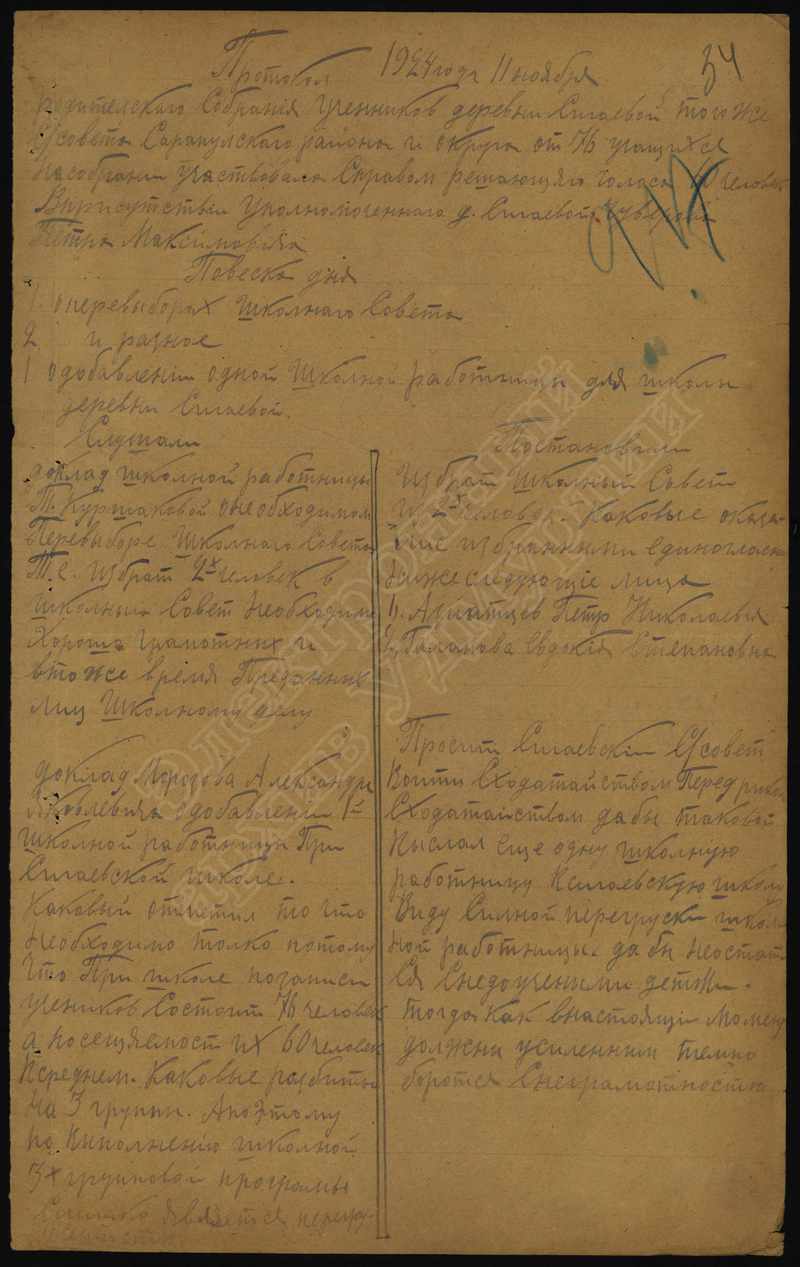 Протокол 1924 года 11 ноября 34
родителского Собрания Ученников деревни Сигаевой того же
С/совета Сарапулскаго района и округа от 76 учащихся
На собрании участвовало С правом решающяго голоса 40 человек
В присутствии Уполномоченнаго д. Сигаевой
Петра Максимовича
Повеска дня
1 о перевыборах Школнаго Совета
2 и разное
1 о добавлении одной Школной работницы для школы
деревни Сигаевой.
Слушали
доклад школной работницы
Т. Куршаковой о необходимом
Перевыборе Школнаго Совета
Т.е. избрат 2х человек в
школный Совет необходимо
Хорошо грамотных и
в то же время Преданных
лиц Школному делу
доклад Морозова Александра
Яковлевича о добавлении 1й
школной работницы При
Сигаевской школе.
Каковый отметил то что
необходимо толко потому
что При школе по записи
учеников Состоит 76 человек
а посещяемост их 60 человек
В среднем. Каковые разбиты
На 3 групы. А поэтому
по выполнению школной
3х груповой програмы
является перегру-
Постановили
Избрат Школный Совет
из 2х человек. Каковые оказа-
избранными единогласно
Ниже следующие лица
1). Азиатцев Петр Николаевич
2) Евдокия Степановна
Просит Сигаевский С/совет
Войти С ходатайством Перед риком
С ходатайством дабы таковой
Выслал Еще одну школную
работницу В Сигаевскую школу
Виду Силной перегруски школ-
ной работницы. да бы не остат
ся С недоученими детми.
Тогда как в настоящий Момент
должны усиленным темпо
боротся С неграмотностью